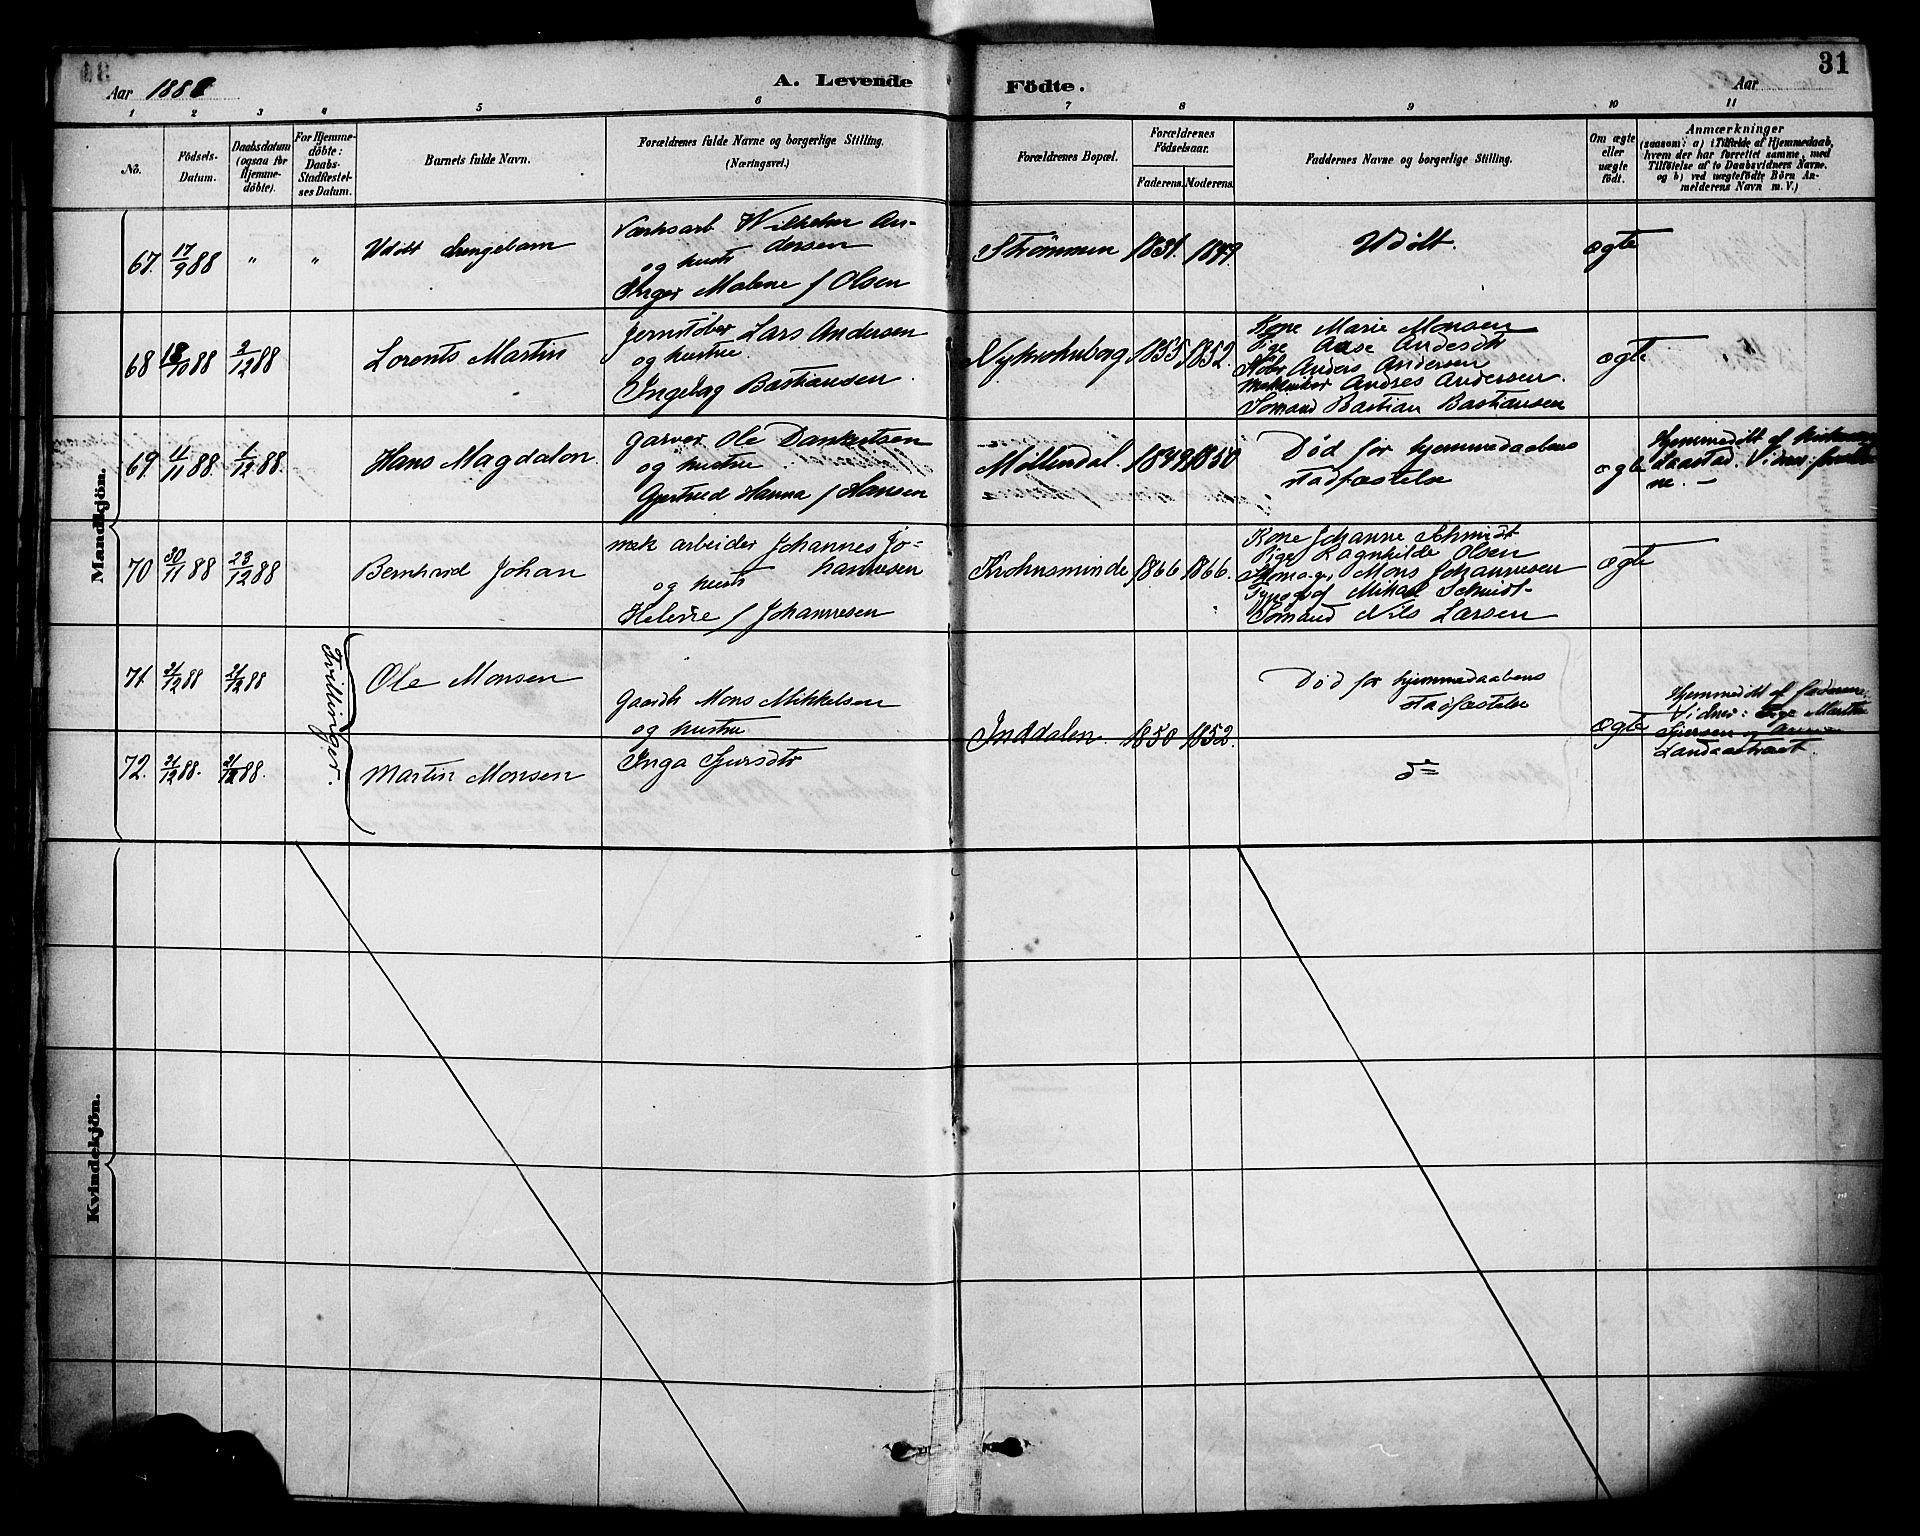 31
Aar 1888
A. Levende Födte.
Aar
1 2 3 4 5 6 7 8 9 10 11
No.
Födsels-Datum.
Daabsdatum (ogsaa for Hjemme-döbte).
For Hjemme-döbte: Daabs-Stadfæstel-ses Datum.
Barnets fulde Navn.
Forældrenes fulde Navne og borgerlige Stilling.
(Næringsvei.)
Forældrenes Bopæl.
Forældrenes Födselsaar.
Faderens. Moderens.
Faddernes Navne og borgerlige Stilling.
Om ægte eller uægte födt.
Anmærkninger
(saasom: a) i Tilfælde af Hjemmedaab, hvem der har forrettet samme, med Tilföielse af to Daabsvidners Navne, og b) ved uægtefödte Börn An-melderens Navn m. V.)
Mandkjön.
67. 17/9 88 " " Udøbt
Wilhelm An-
dersen
og hust
Inger Malene f Olsen
Strømmen 1831. 1849. Udøbt. ægte
68 18/10 88 2/12 88 Lorents Martin
Jernstøber Lars Andersen
og hustru
Ingebag Bastiansen.
Nykrohnborg 1855 1852.
Kone Marie Monsen
Pige Aase
Støber Anders Andersen
Andreas Andersen.
Sømand Bastian Bastiansen
ægte
69. 11/11 88. 1/12 88. Hans Magdalon.
Garver Ole Dankertsen
og hustru
Gjertrud Hanna f Hansen
Møllendal. 1849 1850
Død før hjemmedaabens
stadfæstelse
ægte
Hjemmedøbt af
Laastad. Vidner:
ne. —
70 30/11 88 23/12 88 Bernhard Johan
mek arbeider Johannes Jo-
hannesen
og hust
Helene f Johannesen
Krohnsminde 1866 1866.
Kone Johanne Schmidt
Pige Ragnhilde Olsen
Mons Johannesen
Mikael Schmidt
Sømand Nils Larsen
ægte
Tvillinger.
71. 21/12 88 21/12 88 Ole Monsen
Gaardb Mons Mikkelsen
og hustru
Inga Sjursdtr
Inddalen. 1850 1852.
Død før hjemmedaabens
stadfæstelse
ægte
Hjemmedøbt af faderen.
Vidner: Pige Martha
Landaastræet.
72. 21/12 88. 21/12 88. Martin Monsen
do
Kvindekjön.